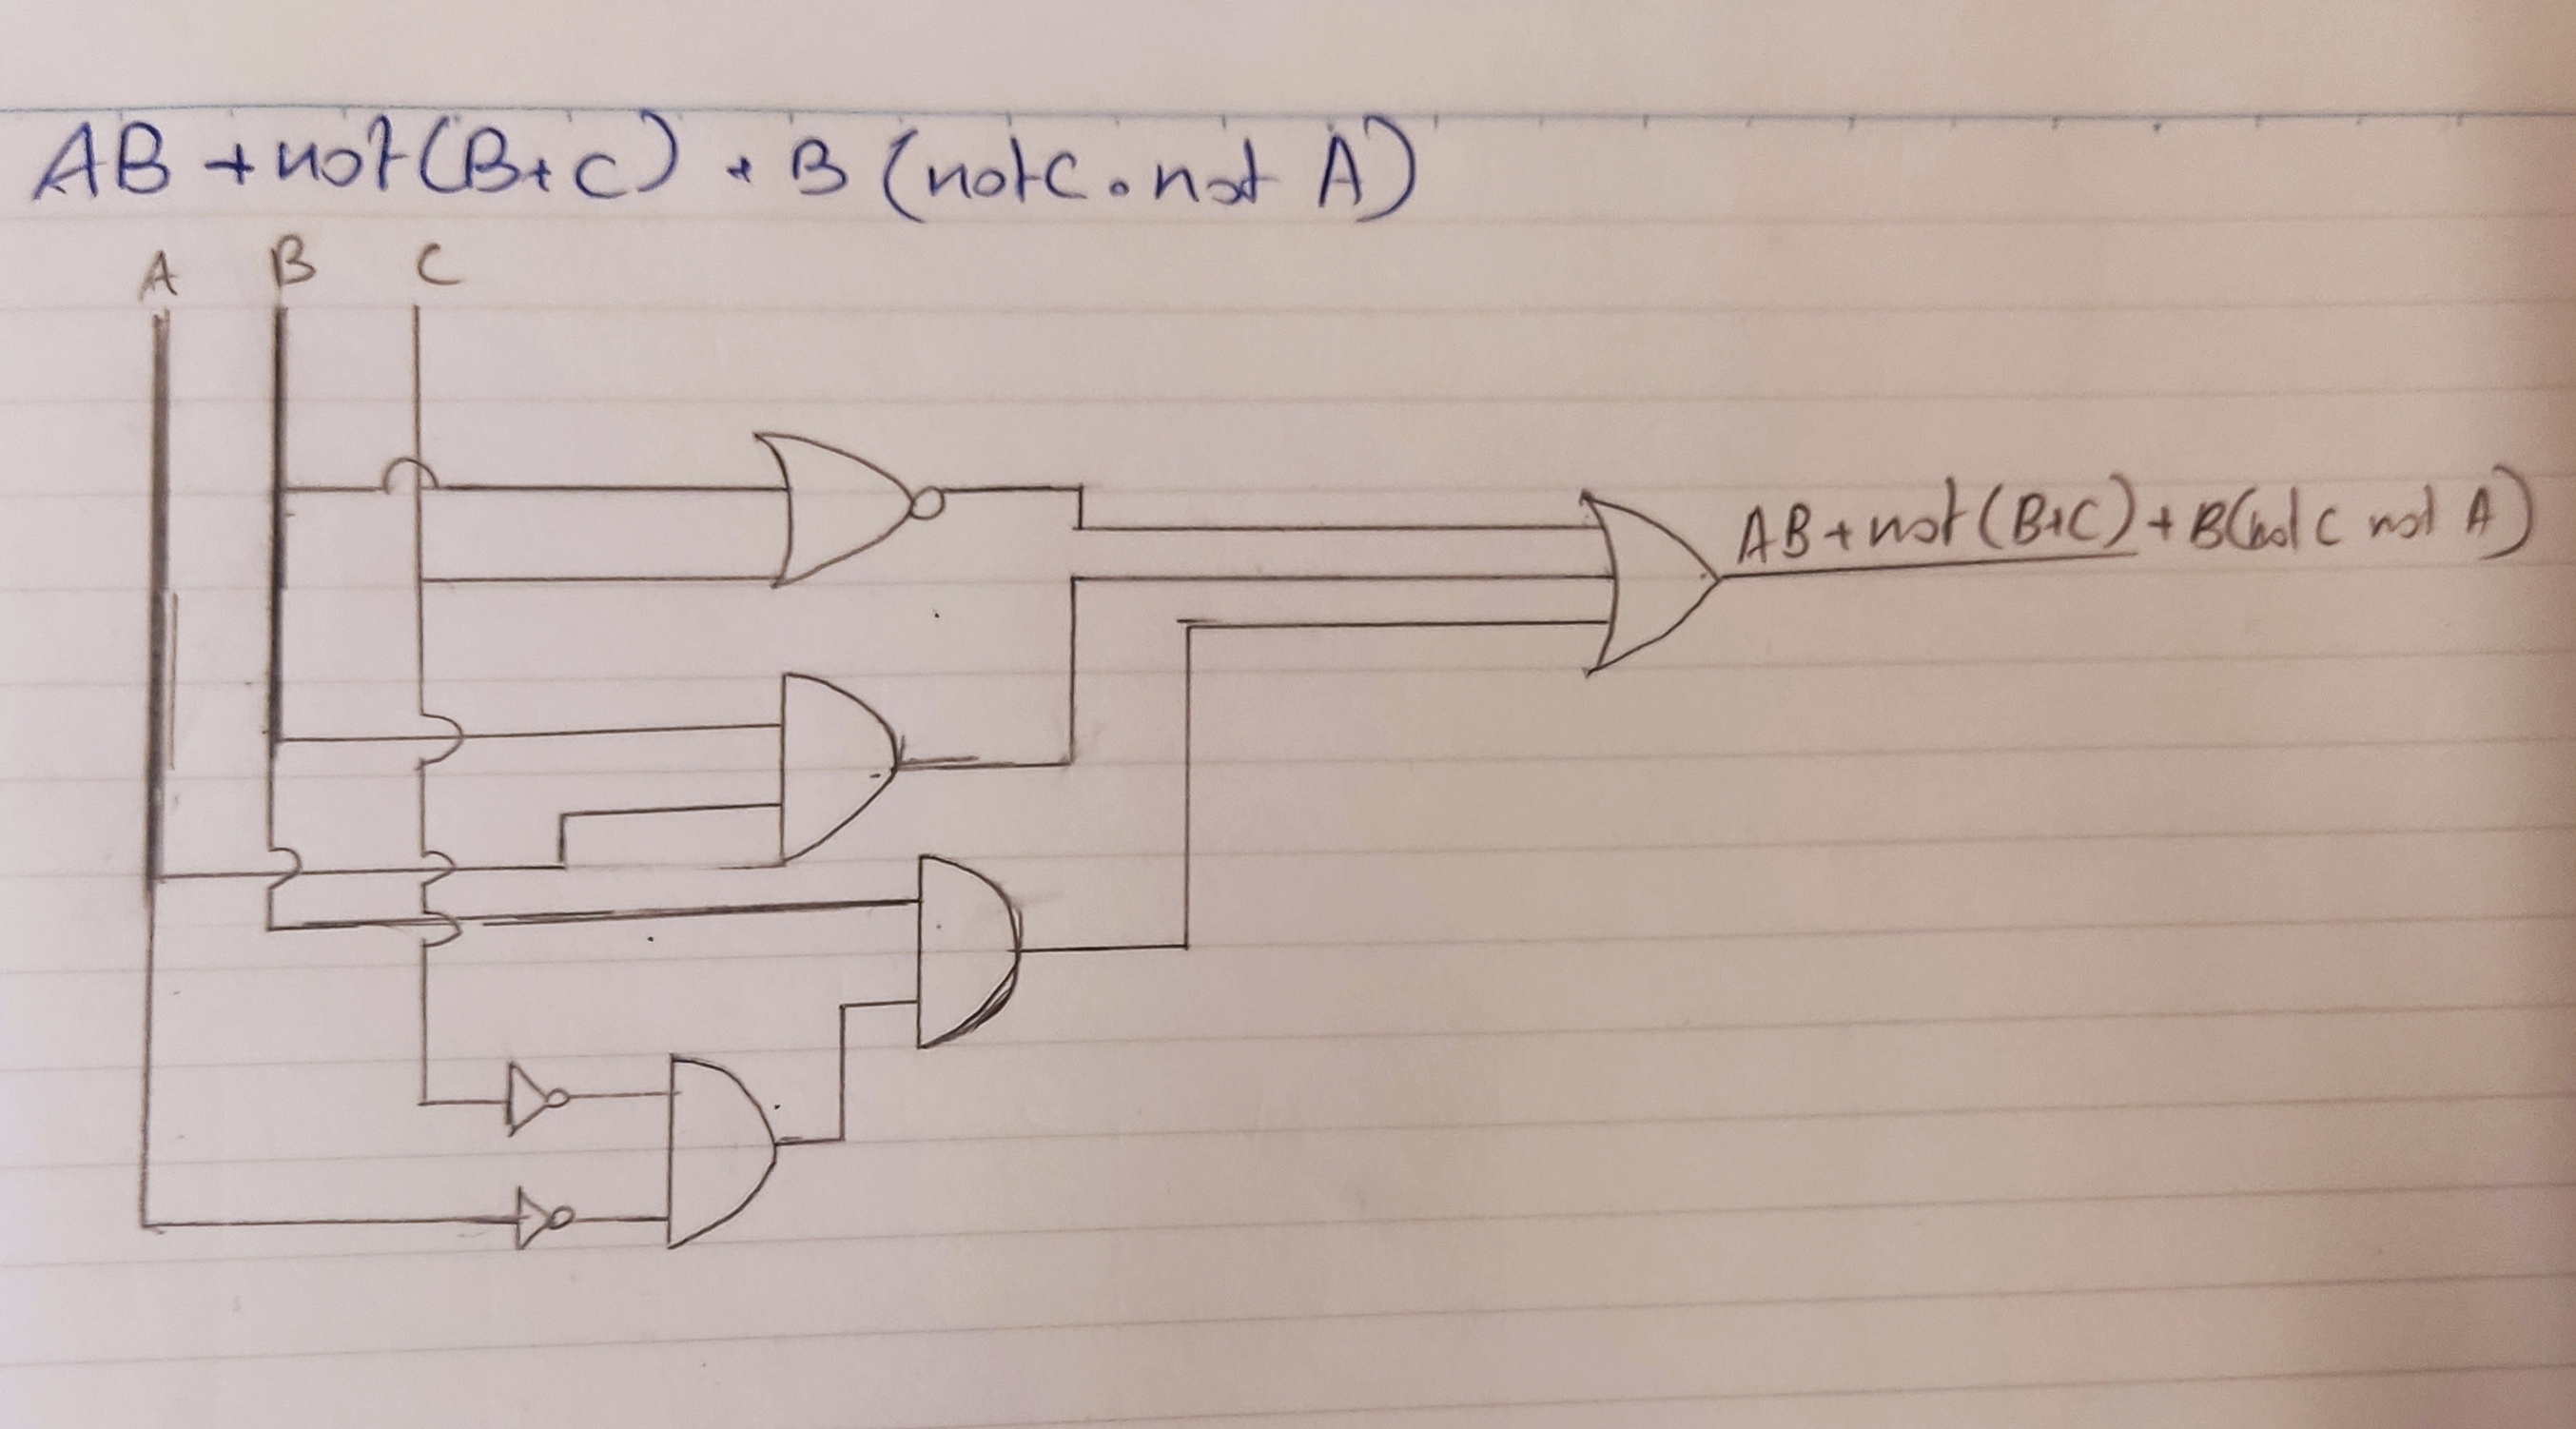 AB + not (B+C) + B (not C . not A)
A B C
AB + not (B+C) + B(not C not A)